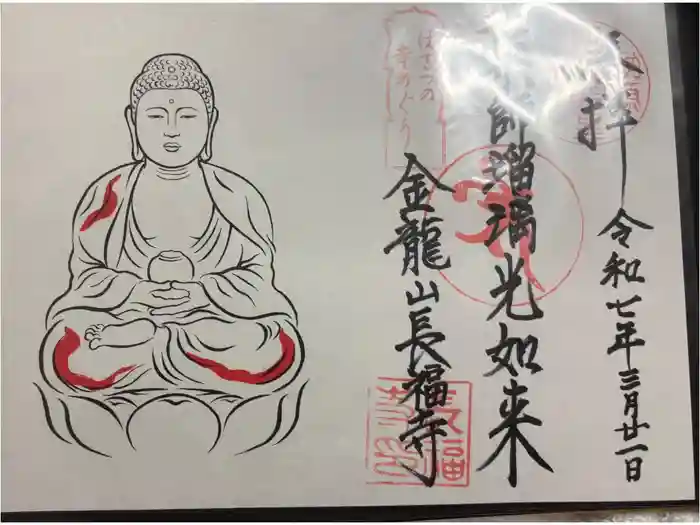 奉拝
令和七年三月廿一日
薬師瑠璃光如来
金龍山長福寺
はぎつの
寺めぐり
長福